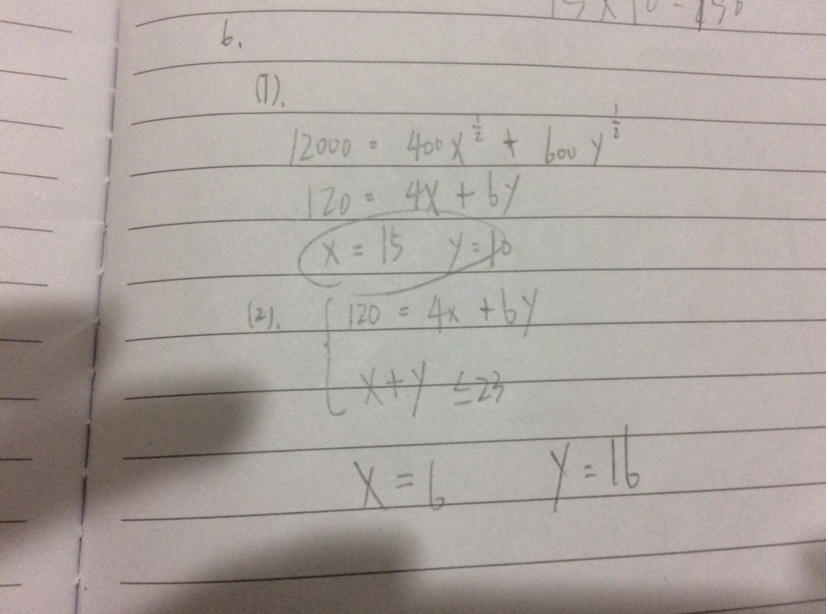 15 x 10 = 150
6.
(1).
12000 = 400x^½ + 600y^½
120 = 4x + 6y
x = 15 y = 10
(2). { 120 = 4x + 6y
x + y ≤ 23
x = 6 y = 16